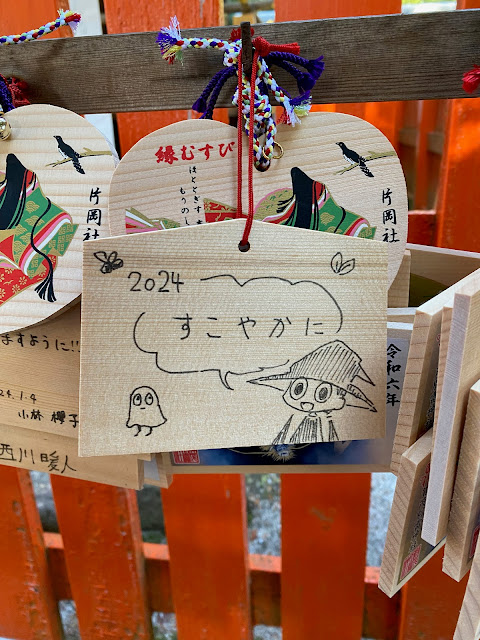 縁むすび
ほとゝぎす
もりのし
片岡社
片岡社
2024
すこやかに
ますように!!
24.1.4
小林 櫻子
西川暖人
令和六年